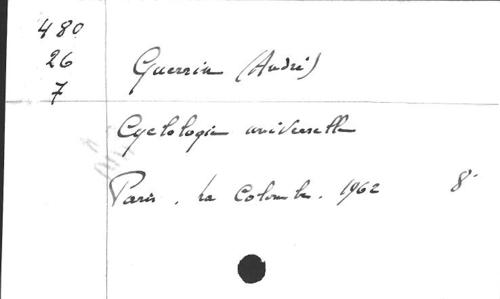 480
26
7
Guerrin (André)
Cyclologie universelle
Paris. La Colombe. 1962 8°